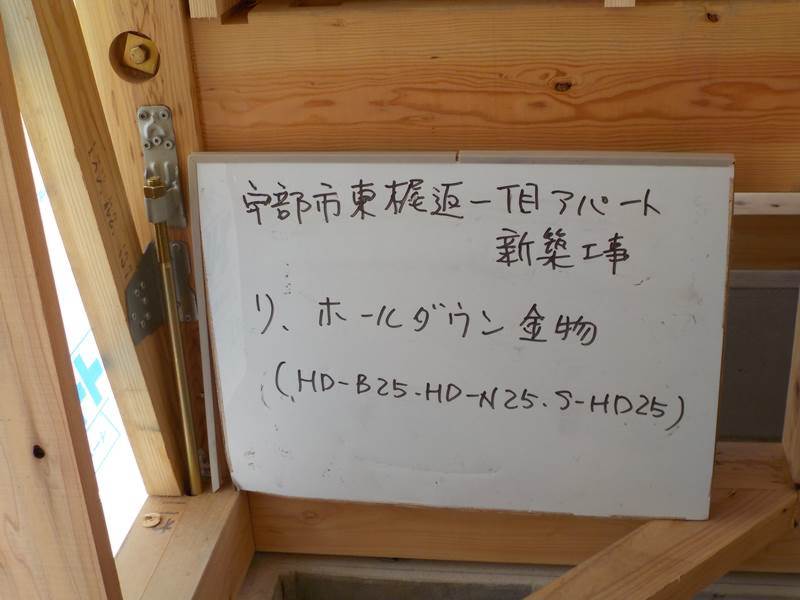 宇部市東梶返一丁目アパート
新築工事
り、ホールダウン金物
(HD-B25.HD-N25.S-HD25)